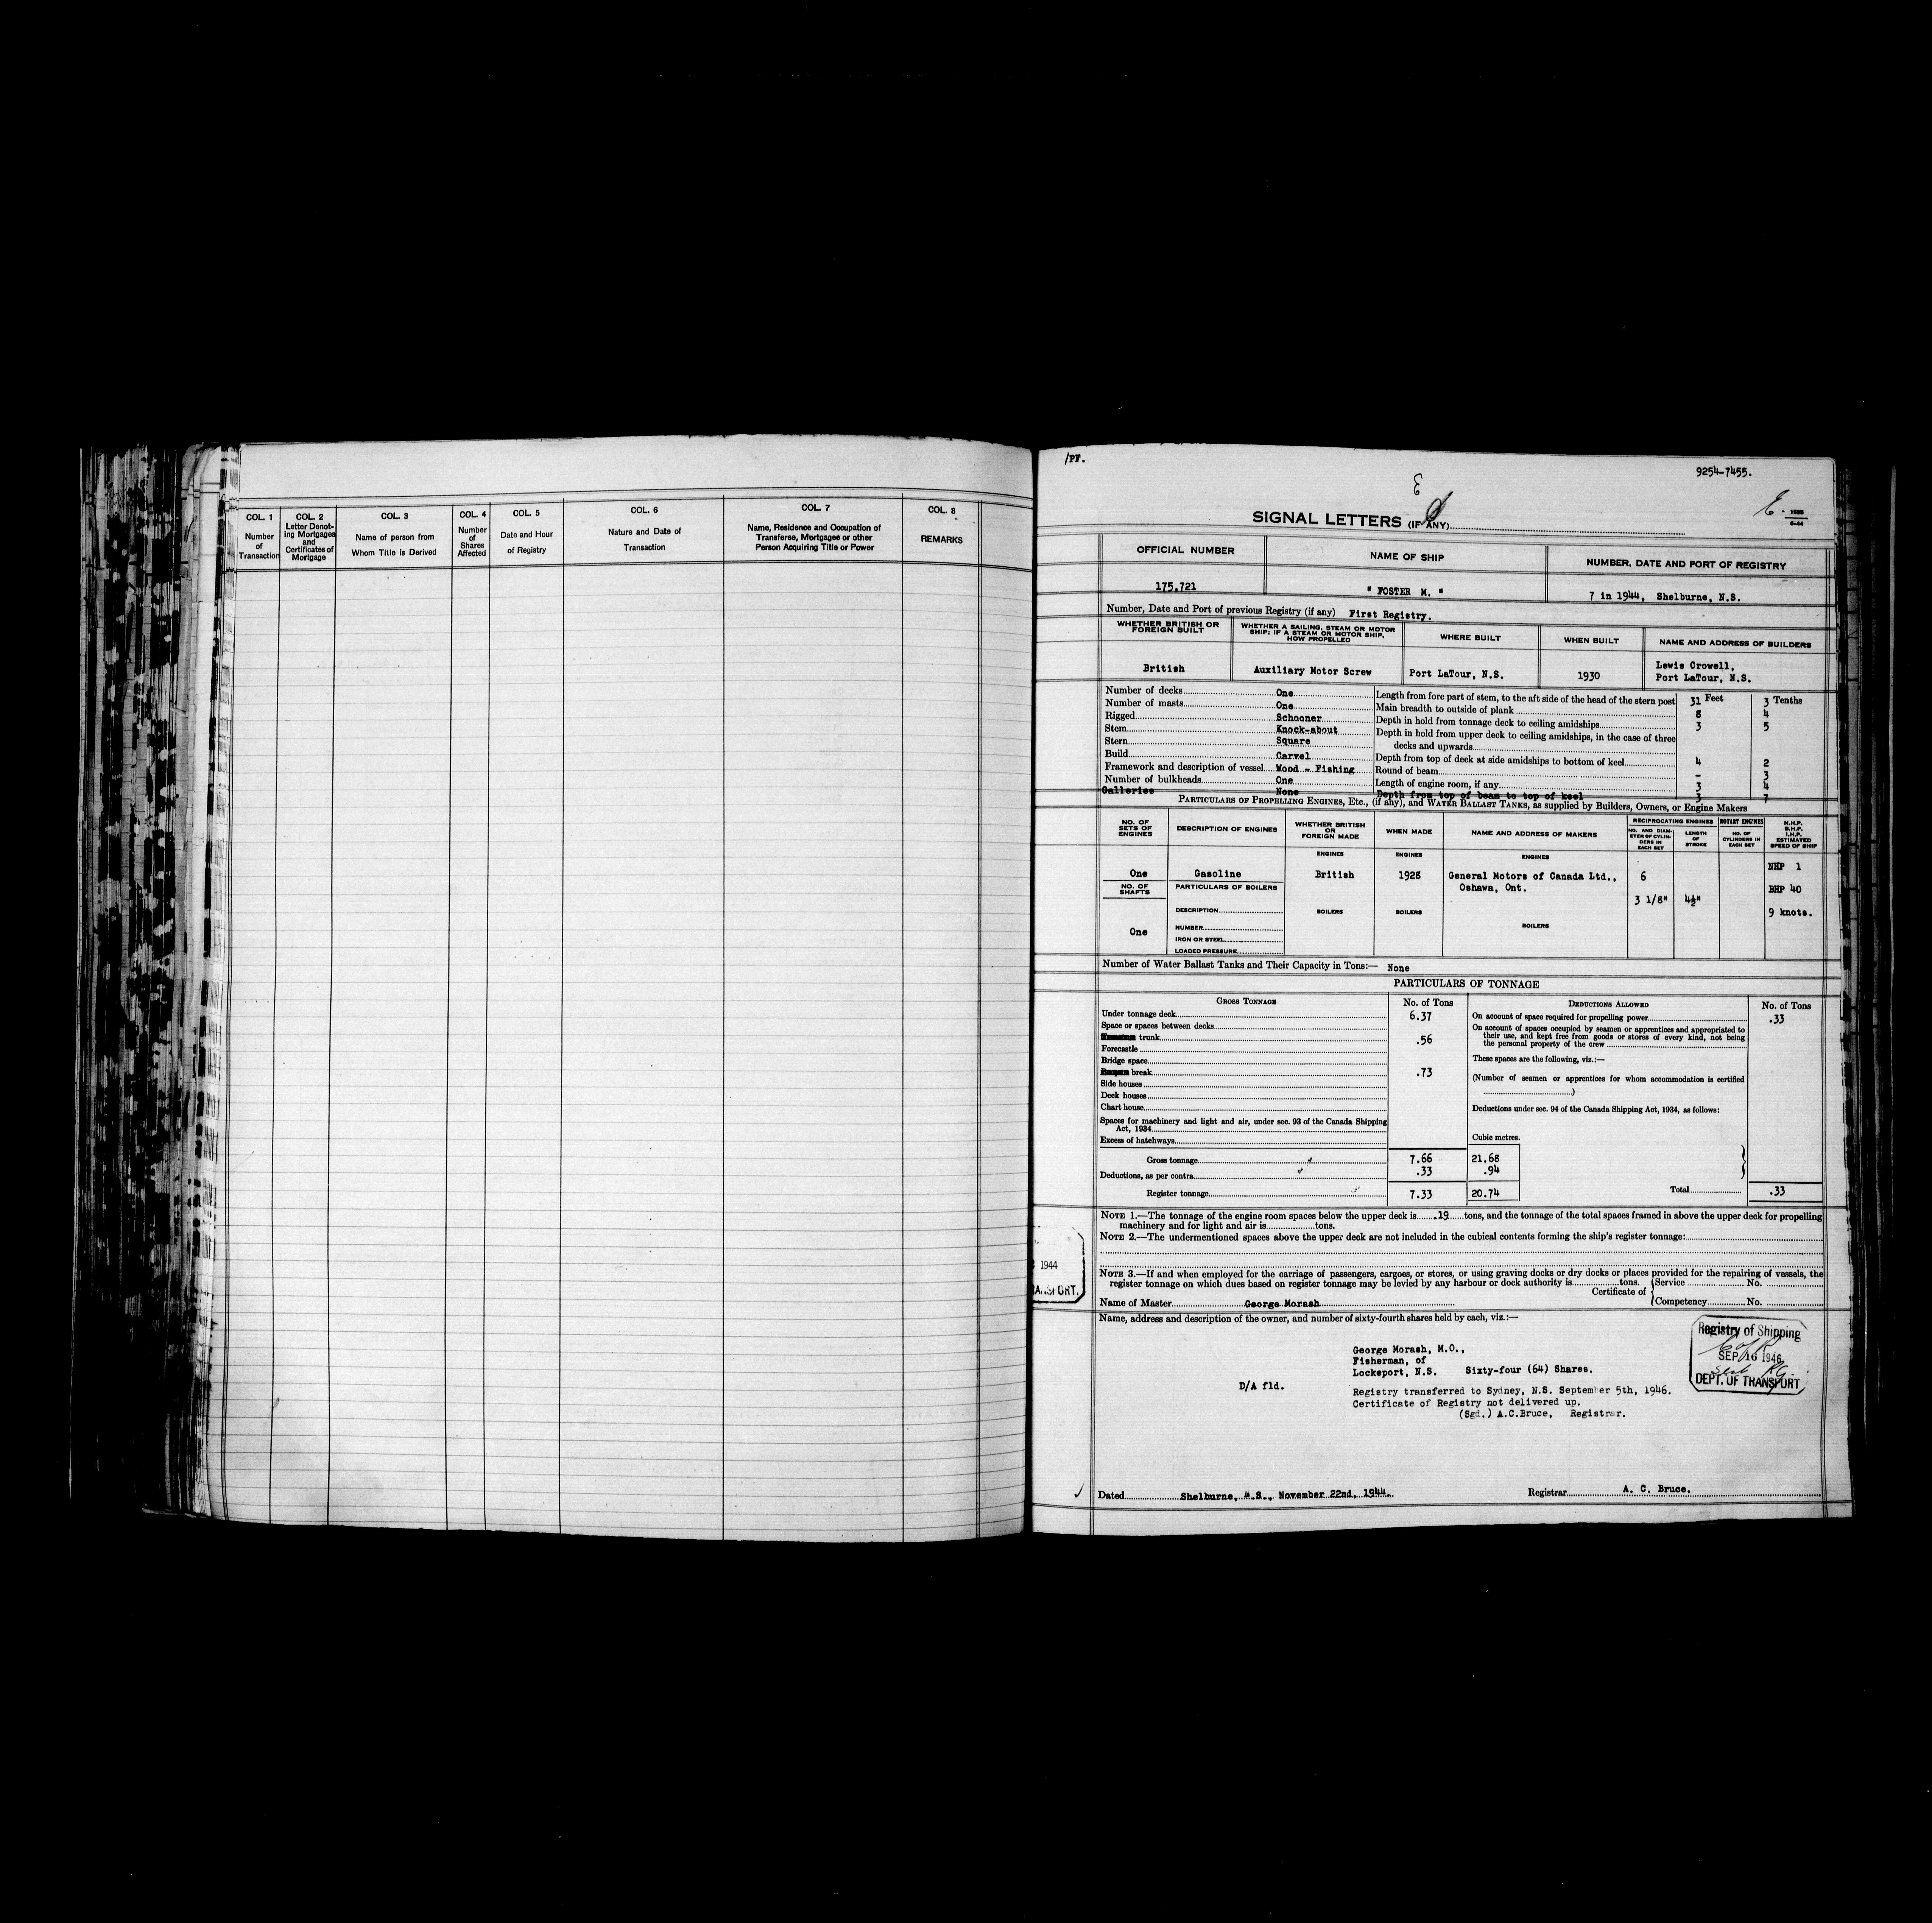 COL. 1
Number
of
Transaction
COL. 2
Letter Denot-
ing Mortgages
and
Certificates of
Mortgage
COL. 3
Name of person from
Whom Title is Derived
COL. 4
Number
of
Shares
Affected
COL. 5
Date and Hour
of Registry
COL. 6
Nature and Date of
Transaction
COL. 7
Name, Residence and Occupation of
Transferee, Mortgagee or other
Person Acquiring Title or Power
COL. 8
REMARKS
/PF.
9254-7455.
SIGNAL LETTERS (IF ANY)
OFFICIAL NUMBER
NAME OF SHIP
NUMBER, DATE AND PORT OF REGISTRY
175,721
" FOSTER M. "
7 in 1944, Shelburne, N.S.
Number, Date and Port of previous Registry (if any) First Registry.
WHETHER BRITISH OR
FOREIGN BUILT
WHETHER A SAILING, STEAM OR MOTOR
SHIP; IF A STEAM OR MOTOR SHIP,
HOW PROPELLED
WHERE BUILT
WHEN BUILT
NAME AND ADDRESS OF BUILDERS
British
Auxiliary Motor Screw
Port LaTour, N.S.
1930
Lewis Crowell,
Port LaTour, N.S.
Number of decks One
Number of masts One
Rigged Schooner
Stem Knock-about
Stern Square
Build Carvel
Framework and description of vessel Wood - Fishing
Number of bulkheads One
Galleries None
Length from fore part of stem, to the aft side of the head of the stern post 31 Feet 3 Tenths
Main breadth to outside of plank 8 4
Depth in hold from tonnage deck to ceiling amidships 3 5
Depth in hold from upper deck to ceiling amidships, in the case of three
decks and upwards
Depth from top of deck at side amidships to bottom of keel 4 2
Round of beam - 3
Length of engine room, if any 3 4
Depth from top of beam to top of keel 3 7
PARTICULARS OF PROPELLING ENGINES, ETC., (if any), and WATER BALLAST TANKS, as supplied by Builders, Owners, or Engine Makers
NO. OF
SETS OF
ENGINES
DESCRIPTION OF ENGINES
WHETHER BRITISH
OR
FOREIGN MADE
WHEN MADE
NAME AND ADDRESS OF MAKERS
RECIPROCATING ENGINES
NO. AND DIAM-
ETER OF CYLIN-
DERS IN
EACH SET
LENGTH
OF
STROKE
ROTARY ENGINES
NO. OF
CYLINDERS IN
EACH SET
N.H.P.
B.H.P.
I.H.P.
ESTIMATED
SPEED OF SHIP
ENGINES
ENGINES
ENGINES
One
Gasoline
British
1928
General Motors of Canada Ltd.,
Oshawa, Ont.
6
3 1/8"
4½"
NHP 1
BHP 40
9 knots.
NO. OF
SHAFTS
One
PARTICULARS OF BOILERS
DESCRIPTION
NUMBER
IRON OR STEEL
LOADED PRESSURE
BOILERS
BOILERS
BOILERS
Number of Water Ballast Tanks and Their Capacity in Tons:— None
PARTICULARS OF TONNAGE
GROSS TONNAGE
No. of Tons
DEDUCTIONS ALLOWED
No. of Tons
Under tonnage deck 6.37
Space or spaces between decks
trunk .56
Forecastle
Bridge space
break .73
Side houses
Deck houses
Chart house
Spaces for machinery and light and air, under sec. 93 of the Canada Shipping
Act, 1934
Excess of hatchways
Gross tonnage 7.66 21.68
Deductions, as per contra .33 .94
Register tonnage 7.33 20.74
On account of space required for propelling power .33
On account of spaces occupied by seamen or apprentices and appropriated to
their use, and kept free from goods or stores of every kind, not being
the personal property of the crew
These spaces are the following, viz.:—
(Number of seamen or apprentices for whom accommodation is certified
)
Deductions under sec. 94 of the Canada Shipping Act, 1934, as follows:
Cubic metres.
Total .33
NOTE 1.—The tonnage of the engine room spaces below the upper deck is .19 tons, and the tonnage of the total spaces framed in above the upper deck for propelling
machinery and for light and air is tons.
NOTE 2.—The undermentioned spaces above the upper deck are not included in the cubical contents forming the ship's register tonnage:
NOTE 3.—If and when employed for the carriage of passengers, cargoes, or stores, or using graving docks or dry docks or places provided for the repairing of vessels, the
register tonnage on which dues based on register tonnage may be levied by any harbour or dock authority is tons.
Certificate of
Service No.
Competency No.
Name of Master George Morash
Name, address and description of the owner, and number of sixty-fourth shares held by each, viz.:—
1944
George Morash, M.O.,
Fisherman, of
Lockeport, N.S. Sixty-four (64) Shares.
D/A fld.
Registry transferred to Sydney, N.S. September 5th, 1946.
Certificate of Registry not delivered up.
(Sgd.) A.C.Bruce, Registrar.
Registry of Shipping
SEP 16 1946
DEPT. OF TRANSPORT
Dated Shelburne, N.S., November 22nd, 1944.
Registrar A. C. Bruce.